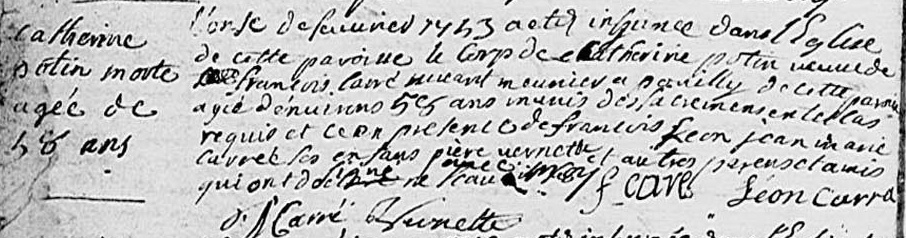 Catherine
potin morte
agée de
56 ans
l'onse de feuvrier 1743 a eté inhumee dans l'Eglise
de cette paroisse le Corp de Catherine potin veuve de
francois Carré vivant meunier a pavilly de cette paroisse
agée d'environs 56 ans munis des sacremens en tel cas
requis et ce en presence de francois Leon jean marie
Carré ses enfans piere vernette et autres parens et amis
qui ont ne f Carré Léon Carré
J Carré Vernette